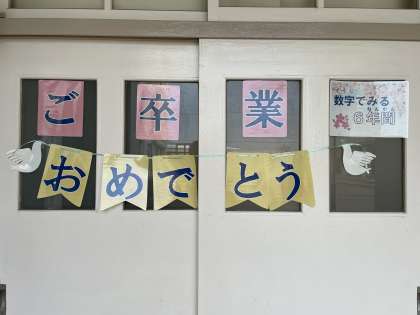 ご卒業
数字でみる
6年間
おめでとう